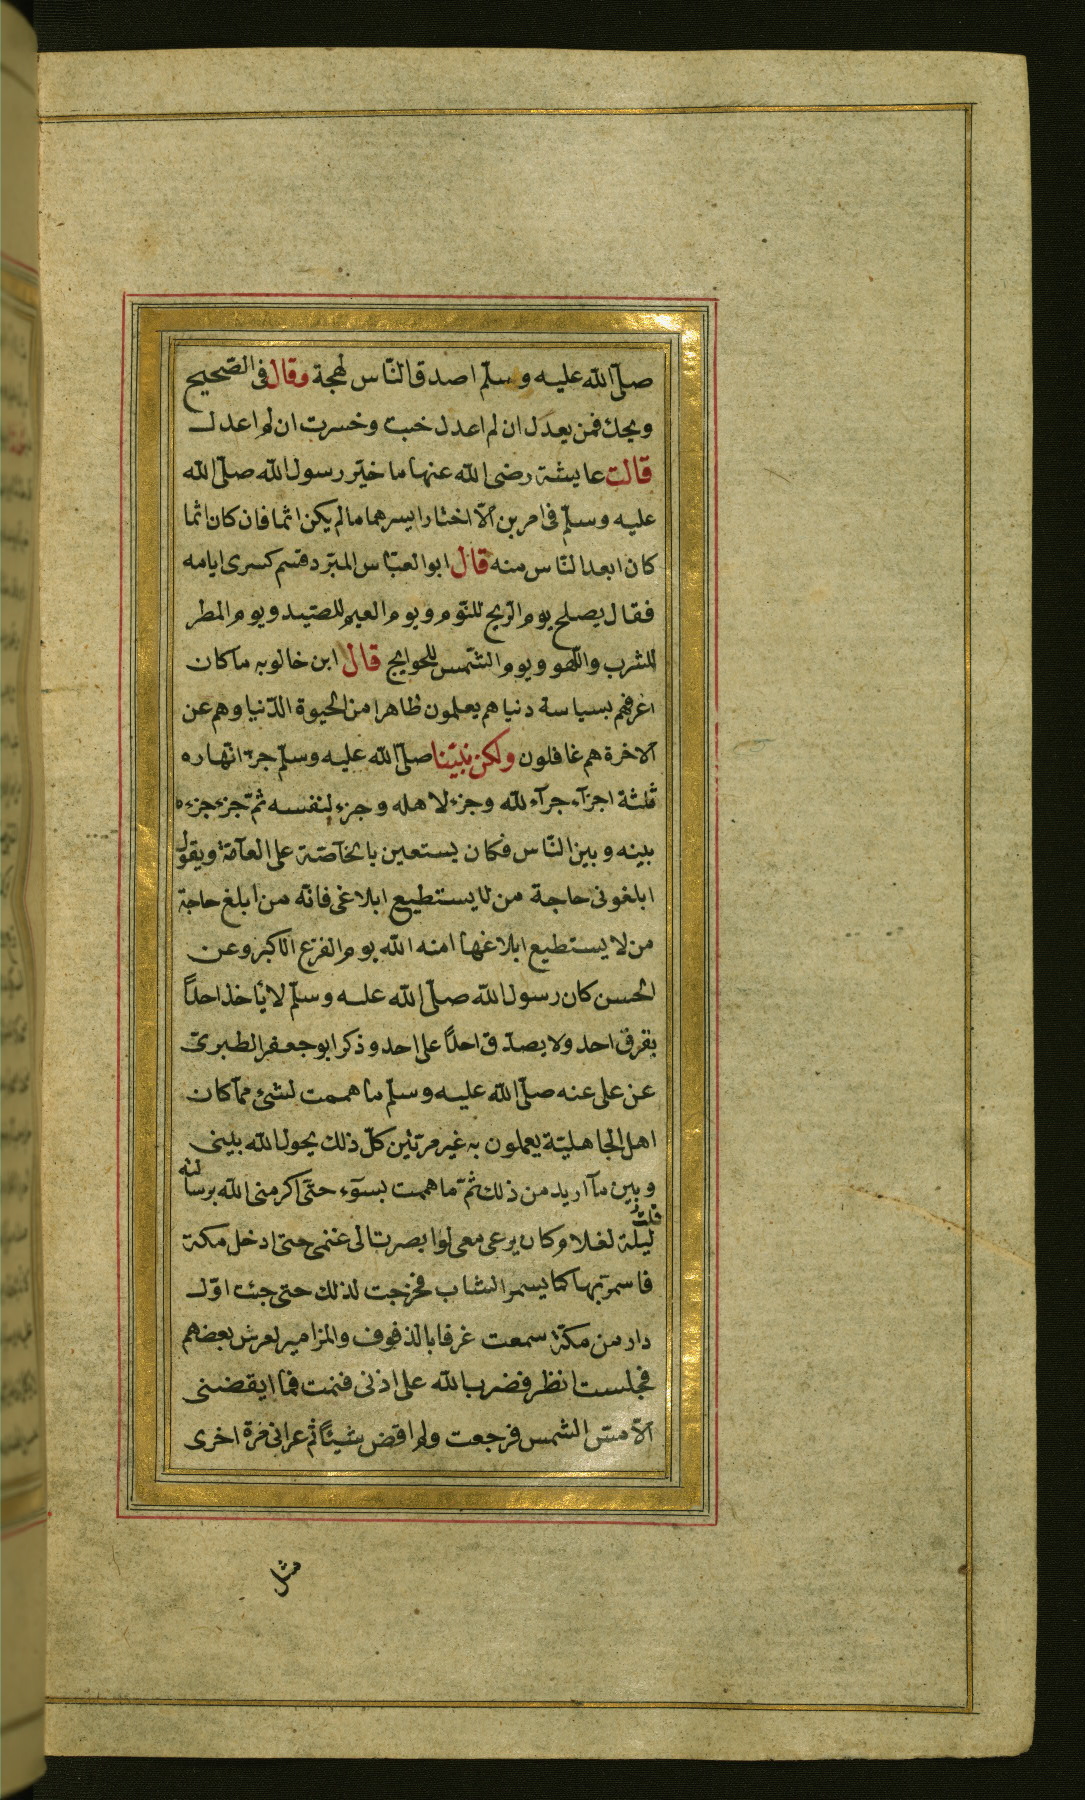 صلّى الله عليه وسلّم اصدق النّاس لهجة وقال فى الصّحيح
ويحك فمن يعدل ان لم اعدل خبت وخسرت ان لم اعدل
قالت عايشة رضى الله عنها ما خيّر رسول الله صلّى الله
عليه وسلّم فى امرين الّا اختار ايسرهما ما لم يكن اثما فان كان اثما
كان ابعد النّاس منه قال ابو العبّاس المبرّد قسم كسرى ايامه
فقال يصلح يوم الرّيح للنّوم ويوم الغيم للصّيد ويوم المطر
للشرب واللّهو ويوم الشّمس للحوايج قال ابن خالويه ما كان
اعرفهم بسياسة دنياهم يعلمون ظاهرا من الحيوة الدّنيا وهم عن
الاخرة هم غافلون ولكن نبيّنا صلّى الله عليه وسلّم جزّا نهاره
ثلثة اجزآء جزآء لله وجزء لاهله وجزء لنفسه ثمّ جزء جزءه
بينه وبين النّاس فكان يستعين بالخآصّة على العآمّة ويقول
ابلغونى حاجة من لا يستطيع ابلاغى فانّه من ابلغ حاجة
من لا يستطيع ابلاغها امنه الله يوم الفزع الاكبر وعن
الحسن كان رسول الله صلّى الله عليه وسلّم لا يأخذ احداً
بقرف احد ولا يصدّق احداً على احد وذكر ابو جعفر الطبرىّ
عن على عنه صلّى الله عليه وسلّم ما هممت لشئ ممّا كان
اهل الجاهليّة يعملون به غير مرتين كلّ ذلك يحول الله بينى
وبين مآ اريد من ذلك ثمّ ما هممت بسوٓء حتّى اكرمنى الله برسالته
قلت ليلة لغلام كان يرعى معى لو ابصرت لى غنمى حتى ادخل مكة
فاسمر بها كما يسمر الشاب فخرجت لذلك حتى جئت اوّل
دار من مكة سمعت عزفا بالدفوف والمزامير لعرس بعضهم
فجلست انظر فضرب الله على اذنى فنمت فما ايقضنى
الّا مسّ الشمس فرجعت ولم اقض شيئاً ثم عرانى مرة اخرى
مثل